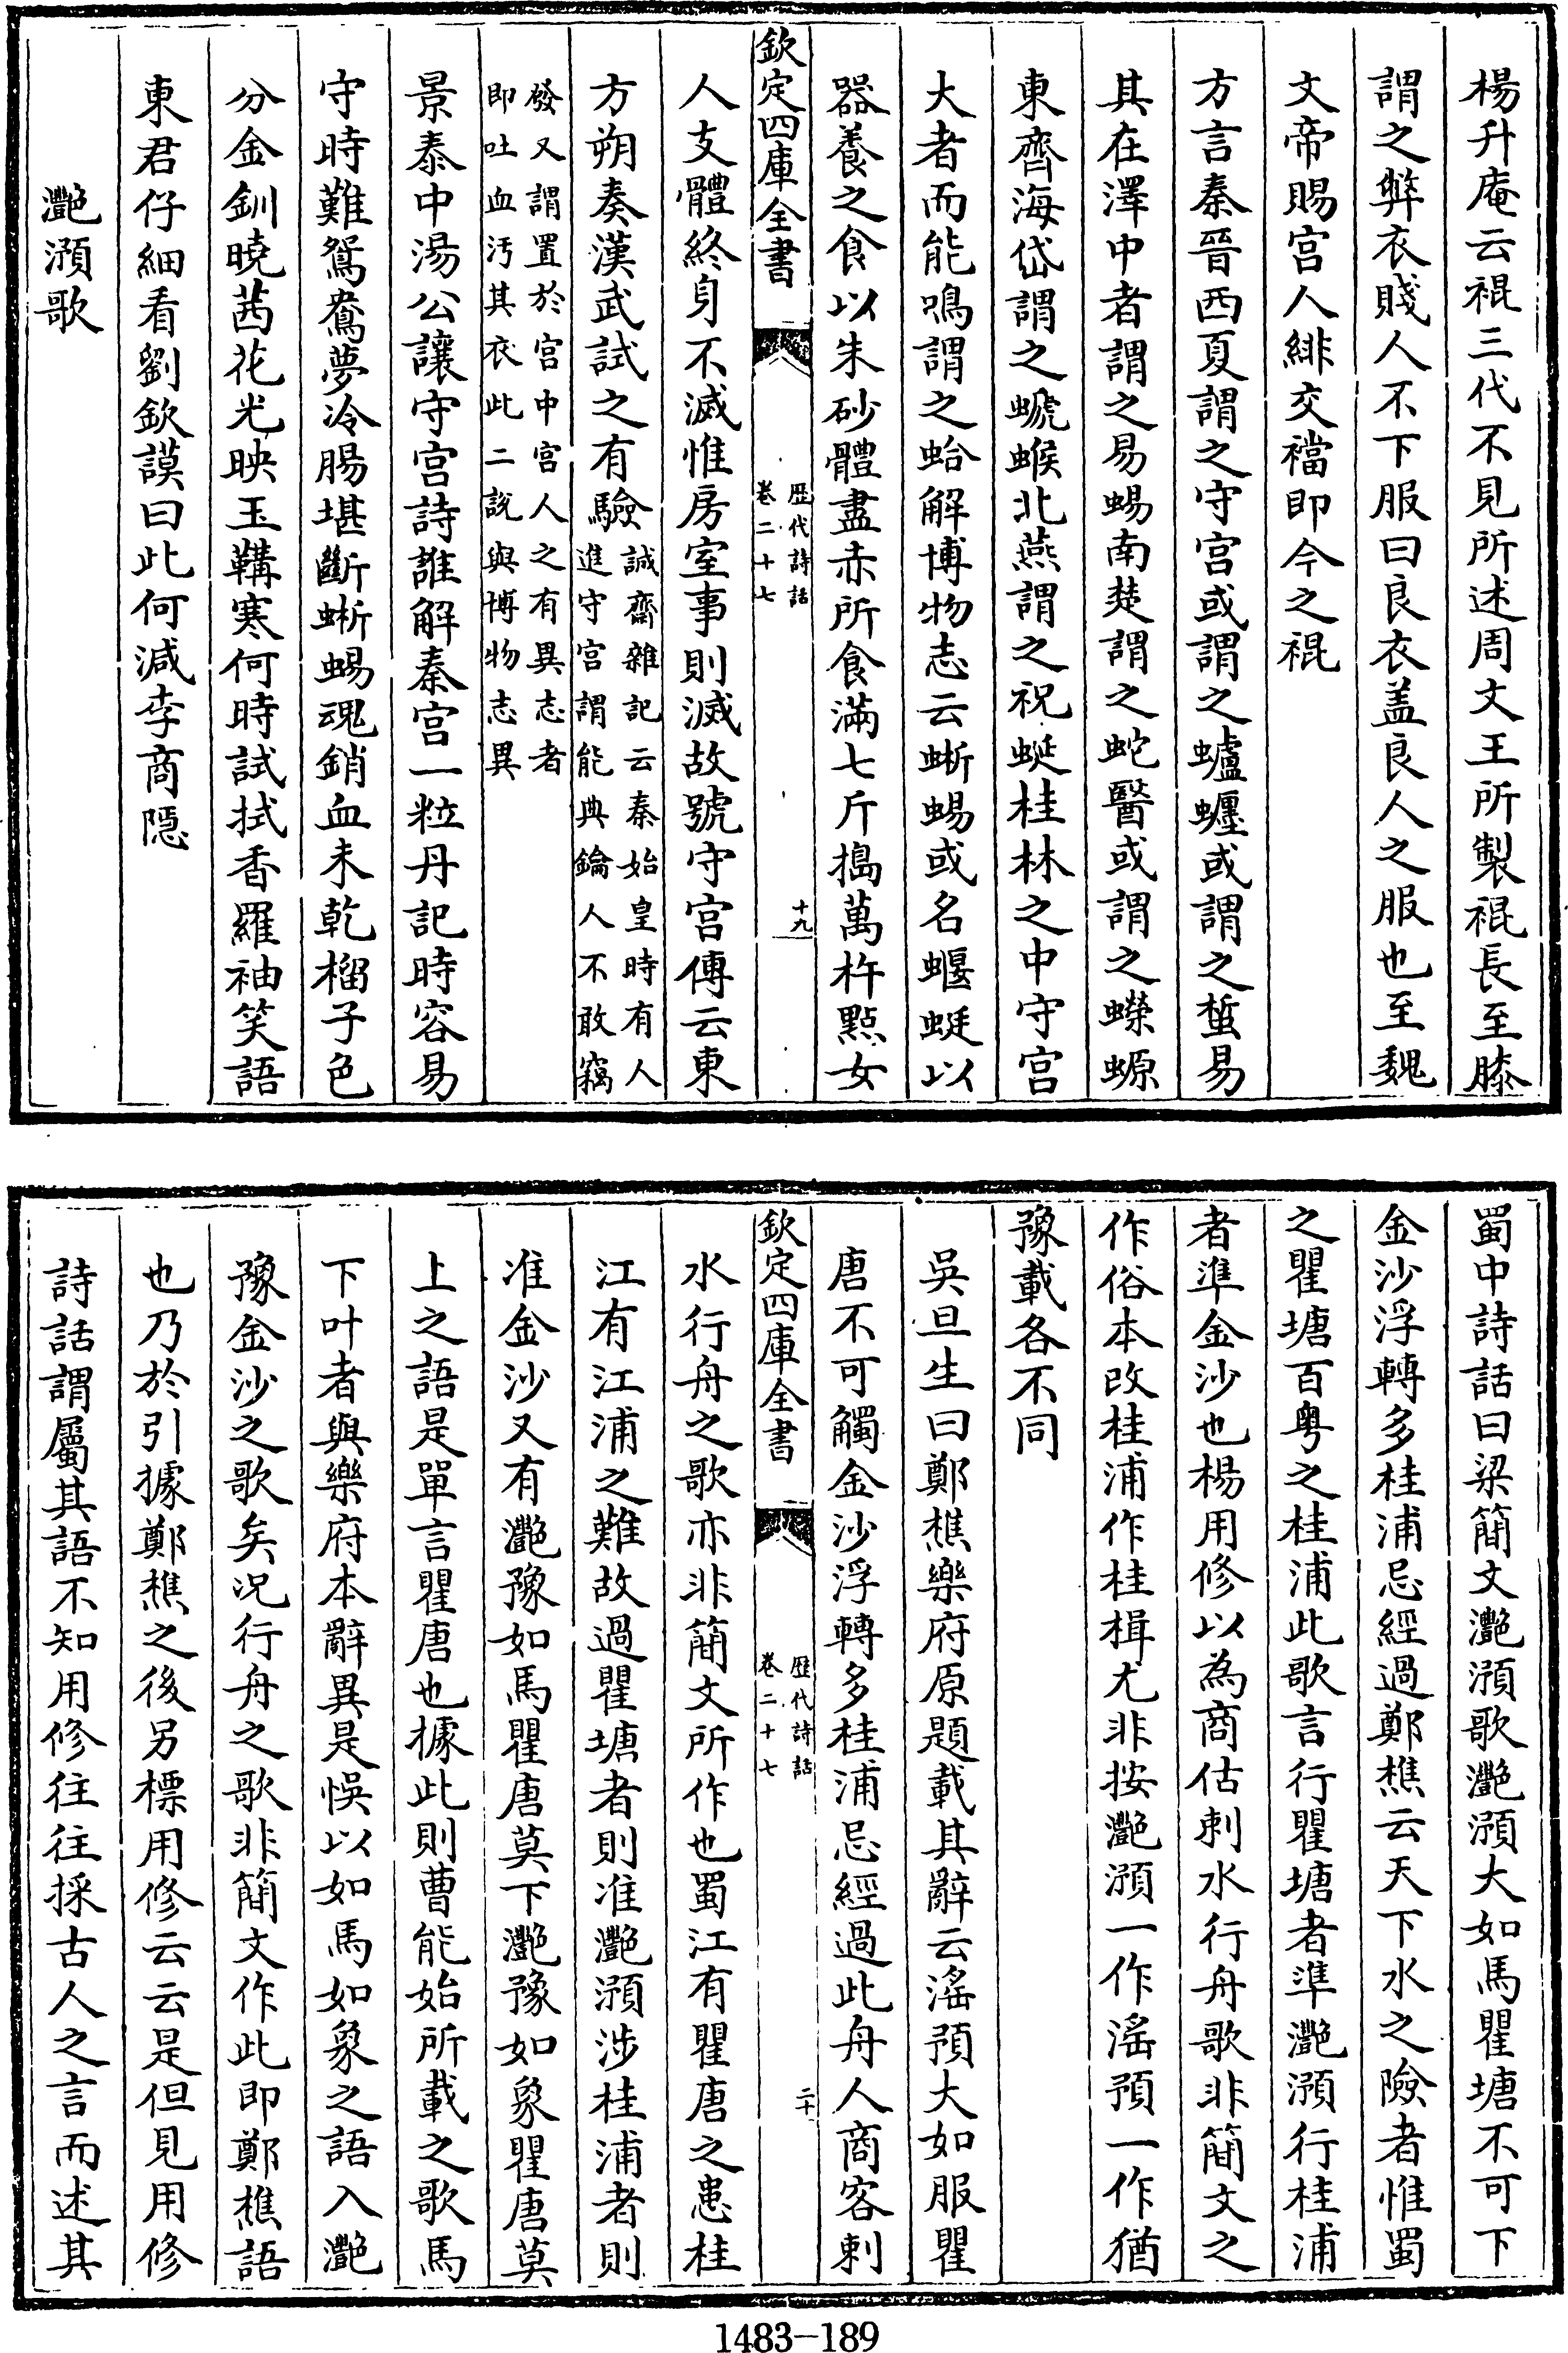 楊升庵云裩三代不見所述周文王所製裩長至膝
謂之弊衣賤人不下服曰良衣盖良人之服也至魏
文帝賜宫人緋交襠即今之裩
方言秦晉西夏謂之守宫或謂之蠦𧔧或謂之蜤易
其在澤中者謂之易蜴南楚謂之蛇醫或謂之蠑螈
東齊海岱謂之螔䗔北燕謂之祝蜓桂林之中守宫
大者而能鳴謂之蛤解博物志云蜥蜴或名蝘蜓以
器養之食以朱砂體盡赤所食滿七斤搗萬杵㸃女
欽定四庫全書
歷代詩話
卷二十七
十九
人支體終身不滅惟房室事則滅故號守宫傳云東
方朔奏漢武試之有驗誠齋雜記云秦始皇時有人
進守宫謂能典鑰人不敢竊
發又謂置於宫中宫人之有異志者
即吐血汚其衣此二説與博物志異
景泰中湯公讓守宫詩誰解秦宫一粒丹記時容易
守時難鴛鴦夢冷腸堪斷蜥蜴魂銷血未乾榴子色
分金釧曉茜花光映玉鞲寒何時試拭香羅袖笑語
東君仔細看劉欽謨曰此何減李商隱
灧澦歌
蜀中詩話曰梁簡文灧澦歌灧澦大如馬瞿塘不可下
金沙浮轉多桂浦忌經過鄭樵云天下水之險者惟蜀
之瞿塘百粤之桂浦此歌言行瞿塘者準灧澦行桂浦
者準金沙也楊用修以為商估刺水行舟歌非簡文之
作俗本改桂浦作桂楫尤非按灧澦一作滛預一作猶
豫載各不同
吳旦生曰鄭樵樂府原題載其辭云滛預大如服瞿
唐不可觸金沙浮轉多桂浦忌經過此舟人商客刺
欽定四庫全書
歷代詩話
卷二十七
二十
水行舟之歌亦非簡文所作也蜀江有瞿唐之患桂
江有江浦之難故過瞿塘者則准灧澦涉桂浦者則
准金沙又有灧豫如馬瞿唐莫下灧豫如象瞿唐莫
上之語是單言瞿唐也據此則曹能始所載之歌馬
下叶者與樂府本辭異是悞以如馬如象之語入灧
豫金沙之歌矣况行舟之歌非簡文作此即鄭樵語
也乃於引據鄭樵之後另標用修云云是但見用修
詩話謂屬其語不知用修往往採古人之言而述其
1483-189